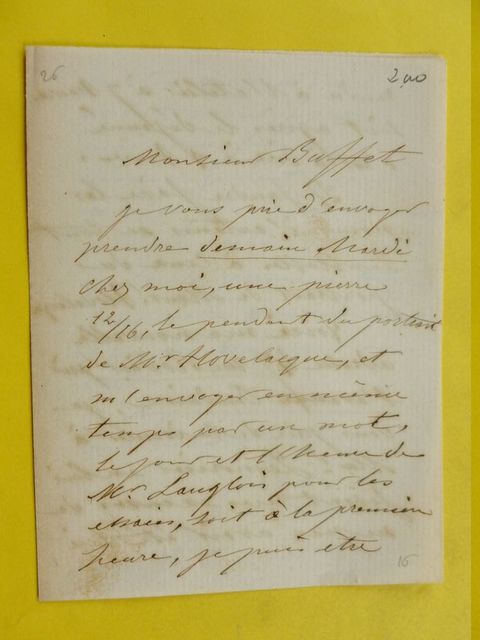 26
200
Monsieur Buffet
je vous prie d'envoyer
prendre demain Mardi
chez moi, une pierre
12/16, le pendant du portrait
de Mr Hovelacque, et
m'envoyer en même
temps par un mot,
le jour et l'heure de
Mr. Langlois pour les
essaies, soit à la première
heure, je puis être
16